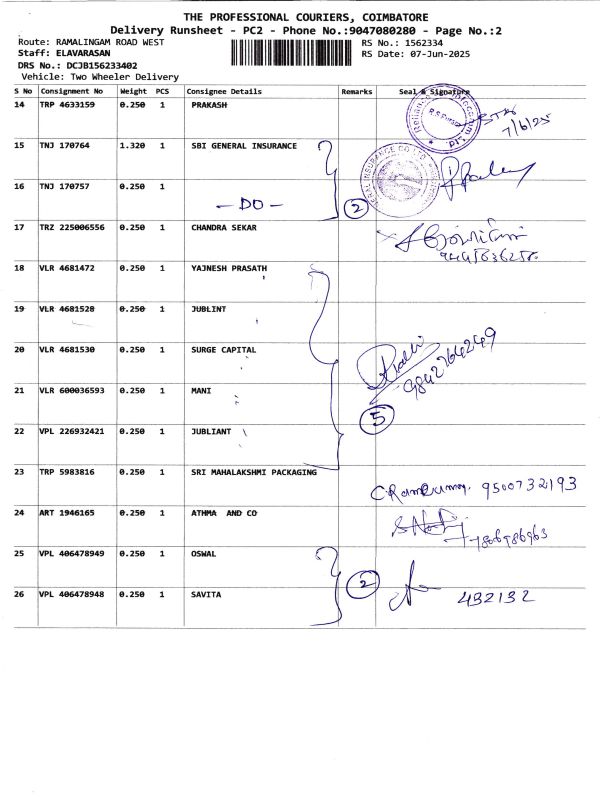 THE PROFESSIONAL COURIERS, COIMBATORE
Delivery Runsheet - PC2 - Phone No.:9047080280 - Page No.:2
Route: RAMALINGAM ROAD WEST
RS No.: 1562334
Staff: ELAVARASAN
RS Date: 07-Jun-2025
DRS No.: DCJB156233402
Vehicle: Two Wheeler Delivery
S No Consignment No Weight PCS Consignee Details Remarks Seal & Signature
14 TRP 4633159 0.250 1 PRAKASH
7/6/25
15 TNJ 170764 1.320 1 SBI GENERAL INSURANCE
16 TNJ 170757 0.250 1
- DO - 2
17 TRZ 225006556 0.250 1 CHANDRA SEKAR
18 VLR 4681472 0.250 1 YAJNESH PRASATH
19 VLR 4681528 0.250 1 JUBLINT
20 VLR 4681530 0.250 1 SURGE CAPITAL
9842764249
21 VLR 600036593 0.250 1 MANI
5
22 VPL 226932421 0.250 1 JUBLIANT
23 TRP 5983816 0.250 1 SRI MAHALAKSHMI PACKAGING
9500732193
24 ART 1946165 0.250 1 ATHMA AND CO
7806986963
25 VPL 406478949 0.250 1 OSWAL
2
26 VPL 406478948 0.250 1 SAVITA
432132